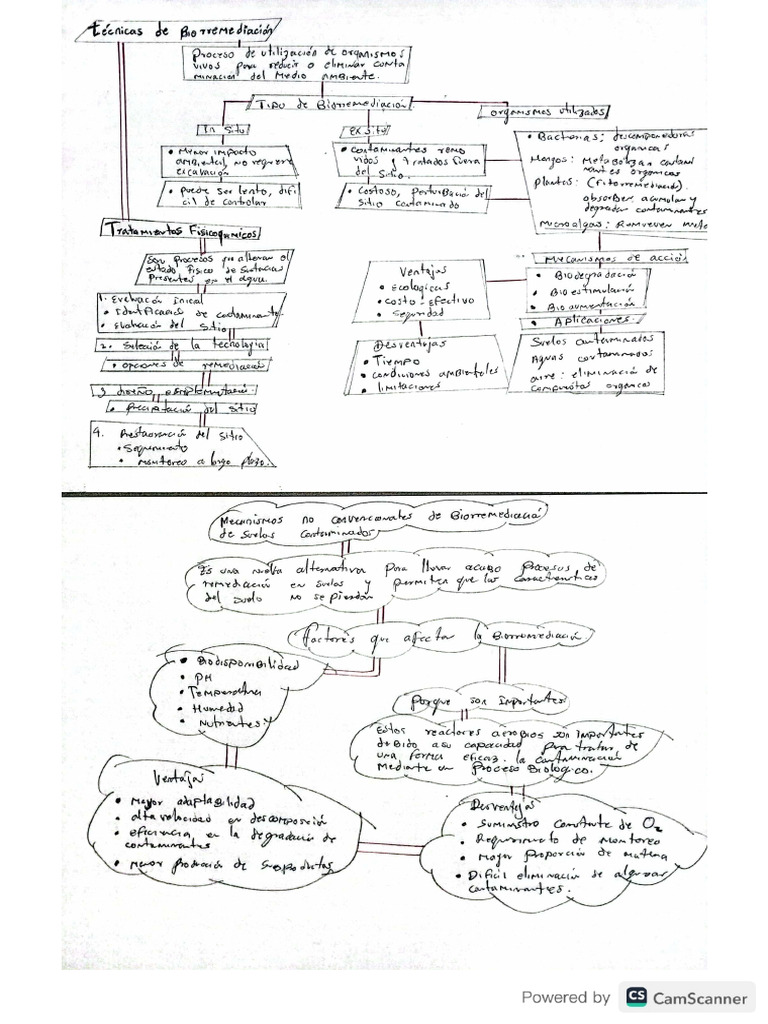 técnicas de Biorremediación
Proceso de utilización de organismos
vivos para reducir o eliminar conta
minación del Medio Ambiente.
Tipo de Biorremediación
Organismos utilizados
In Situ
Ex situ
• Menor impacto
ambiental, no requiere
excavación
• puede ser lento, difi
cil de controlar
• Contaminantes remo
vidos y tratados fuera
del sitio.
• Costoso, perturbación del
sitio contaminado
• Bacterias; descomponedoras
organicas
Hongos: Metabolizan contami
nantes organicos
Plantas: (Fitorremediación).
absorber, acumulan y
degradar contaminantes
Microalgas: Remueven meta
Tratamientos Fisicoquimicos
Son procesos que alteran el
estado Fisico de sustancias
Presentes en el agua.
1. Evaluación Inicial
• Identificación de contaminante
• Evaluación del Sitio
2. Selección de la tecnologia
• opciones de remediación
3 diseño e implementación.
• Precipitación del Sitio
4. Restauración del sitio
• Seguimiento
• monitoreo a largo plazo.
Ventajas
• Ecologicas
• costo-Efectivo
• Seguridad
Desventajas
• Tiempo
• condiciones ambientales
• limitaciones
Mecanismos de acción
• Biodegradación
• Bio estimulación
• Bio aumentación
• Aplicaciones.
Suelos contaminados
Aguas contaminadas
aire: eliminación de
compuestos organicos
Mecanismos no convencionales de Biorremediación
de suelos Contaminados
Es una nueva alternativa para llevar acabo procesos de
remediación en suelos y permiten que las caracteristicas
del suelo no se pierdan
Factores que afectan la Biorremediación
• Biodisponibilidad
• PH
• Temperatura
• Humedad
• Nutrientes
Porque son importantes
Estos reactores aerobios son importantes
debido a su capacidad para tratar de
una forma eficaz la contaminación
Mediante un Proceso Biologico.
Ventajas
• Mayor adaptabilidad
• alta velocidad en descomposición
• eficiencia en la degradación de
contaminantes
• Menor producción de Subproductos
Desventajas
• Suministro constante de O2
• Requerimiento de monitoreo
• Mayor proporción de materia
• Dificil eliminación de algunos
contaminantes.
Powered by CS CamScanner